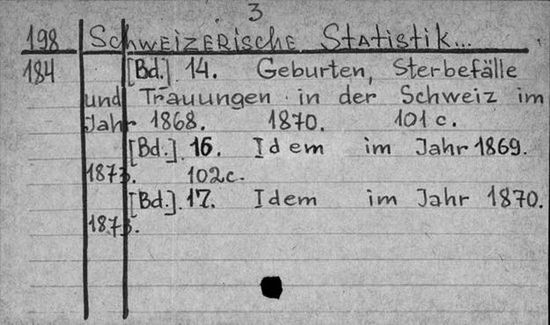 3
198 Schweizerische Statistik...
184 [Bd.] 14. Geburten, Sterbefälle
und Trauungen in der Schweiz im
Jahr 1868. 1870. 101 c.
[Bd.]. 16. Idem im Jahr 1869.
1873. 102c.
[Bd.]. 17. Idem im Jahr 1870.
1873.